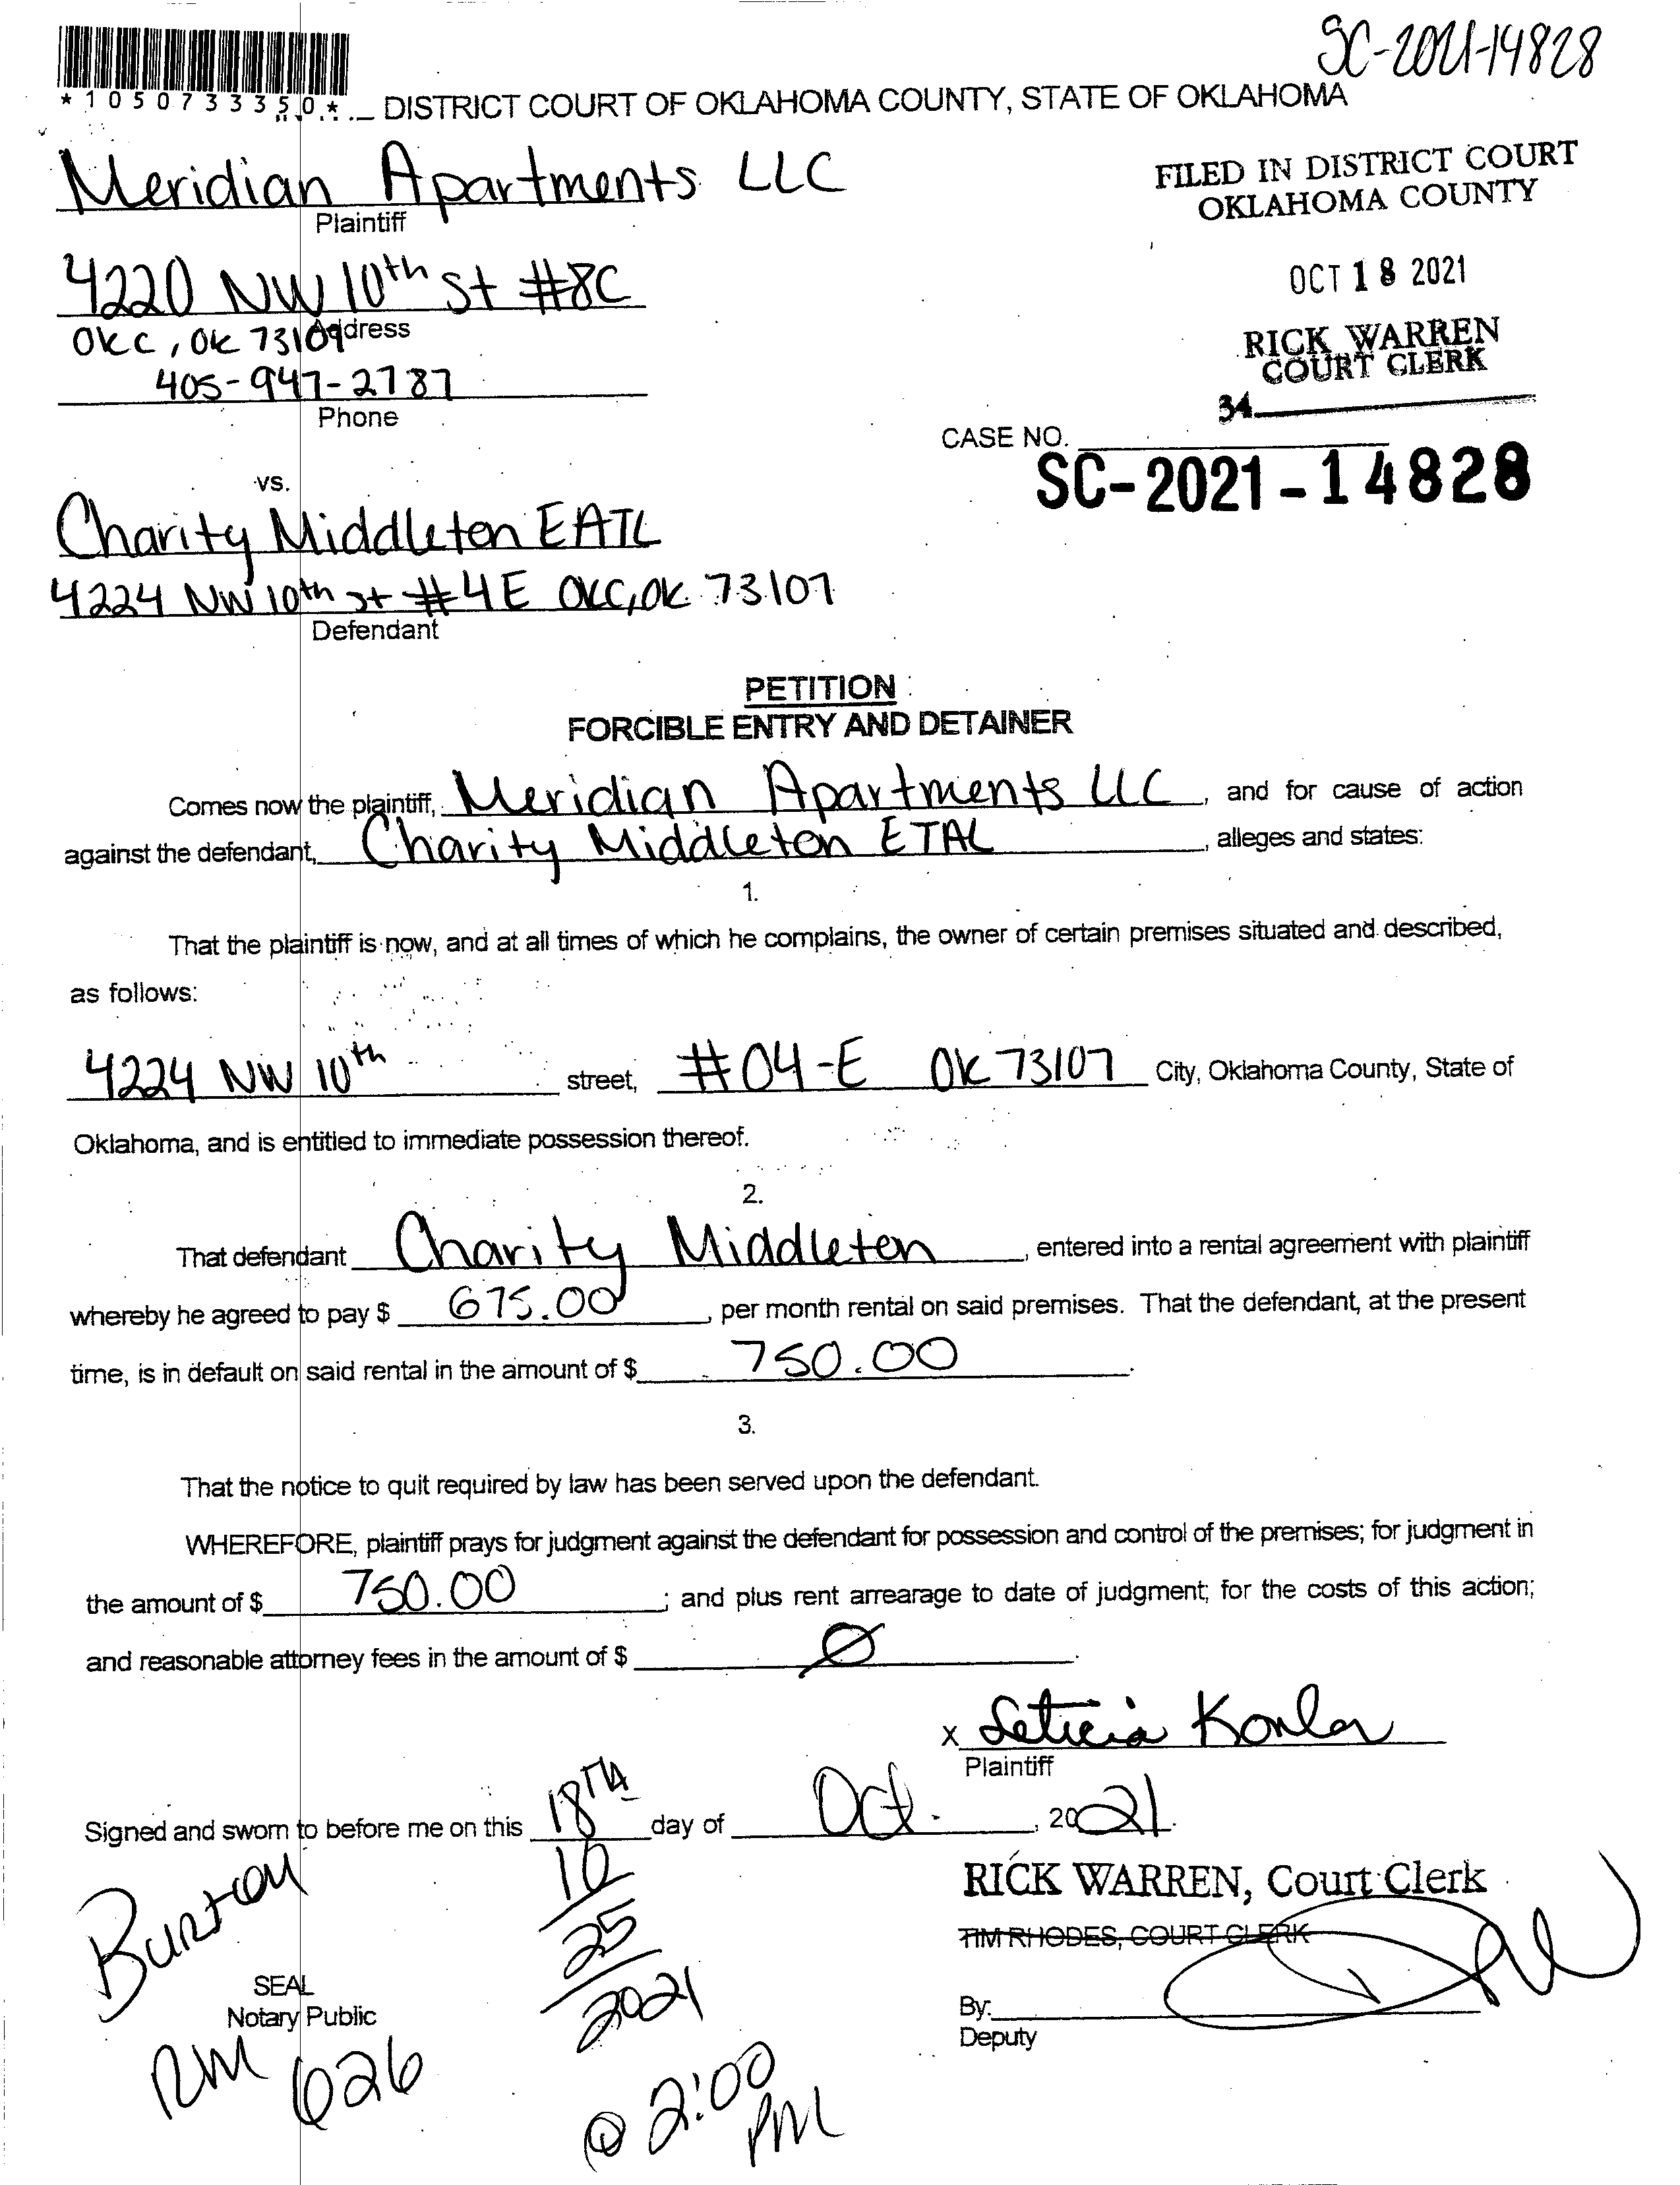 SC-2021-14828
*1050733350*
DISTRICT COURT OF OKLAHOMA COUNTY, STATE OF OKLAHOMA
Meridian Apartments LLC
Plaintiff
FILED IN DISTRICT COURT
OKLAHOMA COUNTY
4220 NW 10th St #8C
OCT 18 2021
OKC, OK 73107
Address
RICK WARREN
COURT CLERK
405-947-2787
Phone
34
CASE NO.
SC-2021-14828
vs.
Charity Middleton EATL
4224 NW 10th st #4E OKC, OK 73107
Defendant
PETITION
FORCIBLE ENTRY AND DETAINER
Comes now the plaintiff, Meridian Apartments LLC, and for cause of action
against the defendant, Charity Middleton ETAL, alleges and states:
1.
That the plaintiff is now, and at all times of which he complains, the owner of certain premises situated and described,
as follows:
4224 NW 10th street, #04-E OK 73107 City, Oklahoma County, State of
Oklahoma, and is entitled to immediate possession thereof.
2.
That defendant Charity Middleton, entered into a rental agreement with plaintiff
whereby he agreed to pay $ 675.00, per month rental on said premises. That the defendant, at the present
time, is in default on said rental in the amount of $ 750.00.
3.
That the notice to quit required by law has been served upon the defendant.
WHEREFORE, plaintiff prays for judgment against the defendant for possession and control of the premises; for judgment in
the amount of $ 750.00; and plus rent arrearage to date of judgment; for the costs of this action;
and reasonable attorney fees in the amount of $ Ø.
X Leticia
Plaintiff
Signed and sworn to before me on this 18TH day of Oct., 2021.
Burton
10/25/2021
RICK WARREN, Court Clerk
TIM RHODES, COURT CLERK
SEAL
Notary Public
By:
Deputy
RM 626
@ 2:00 PM